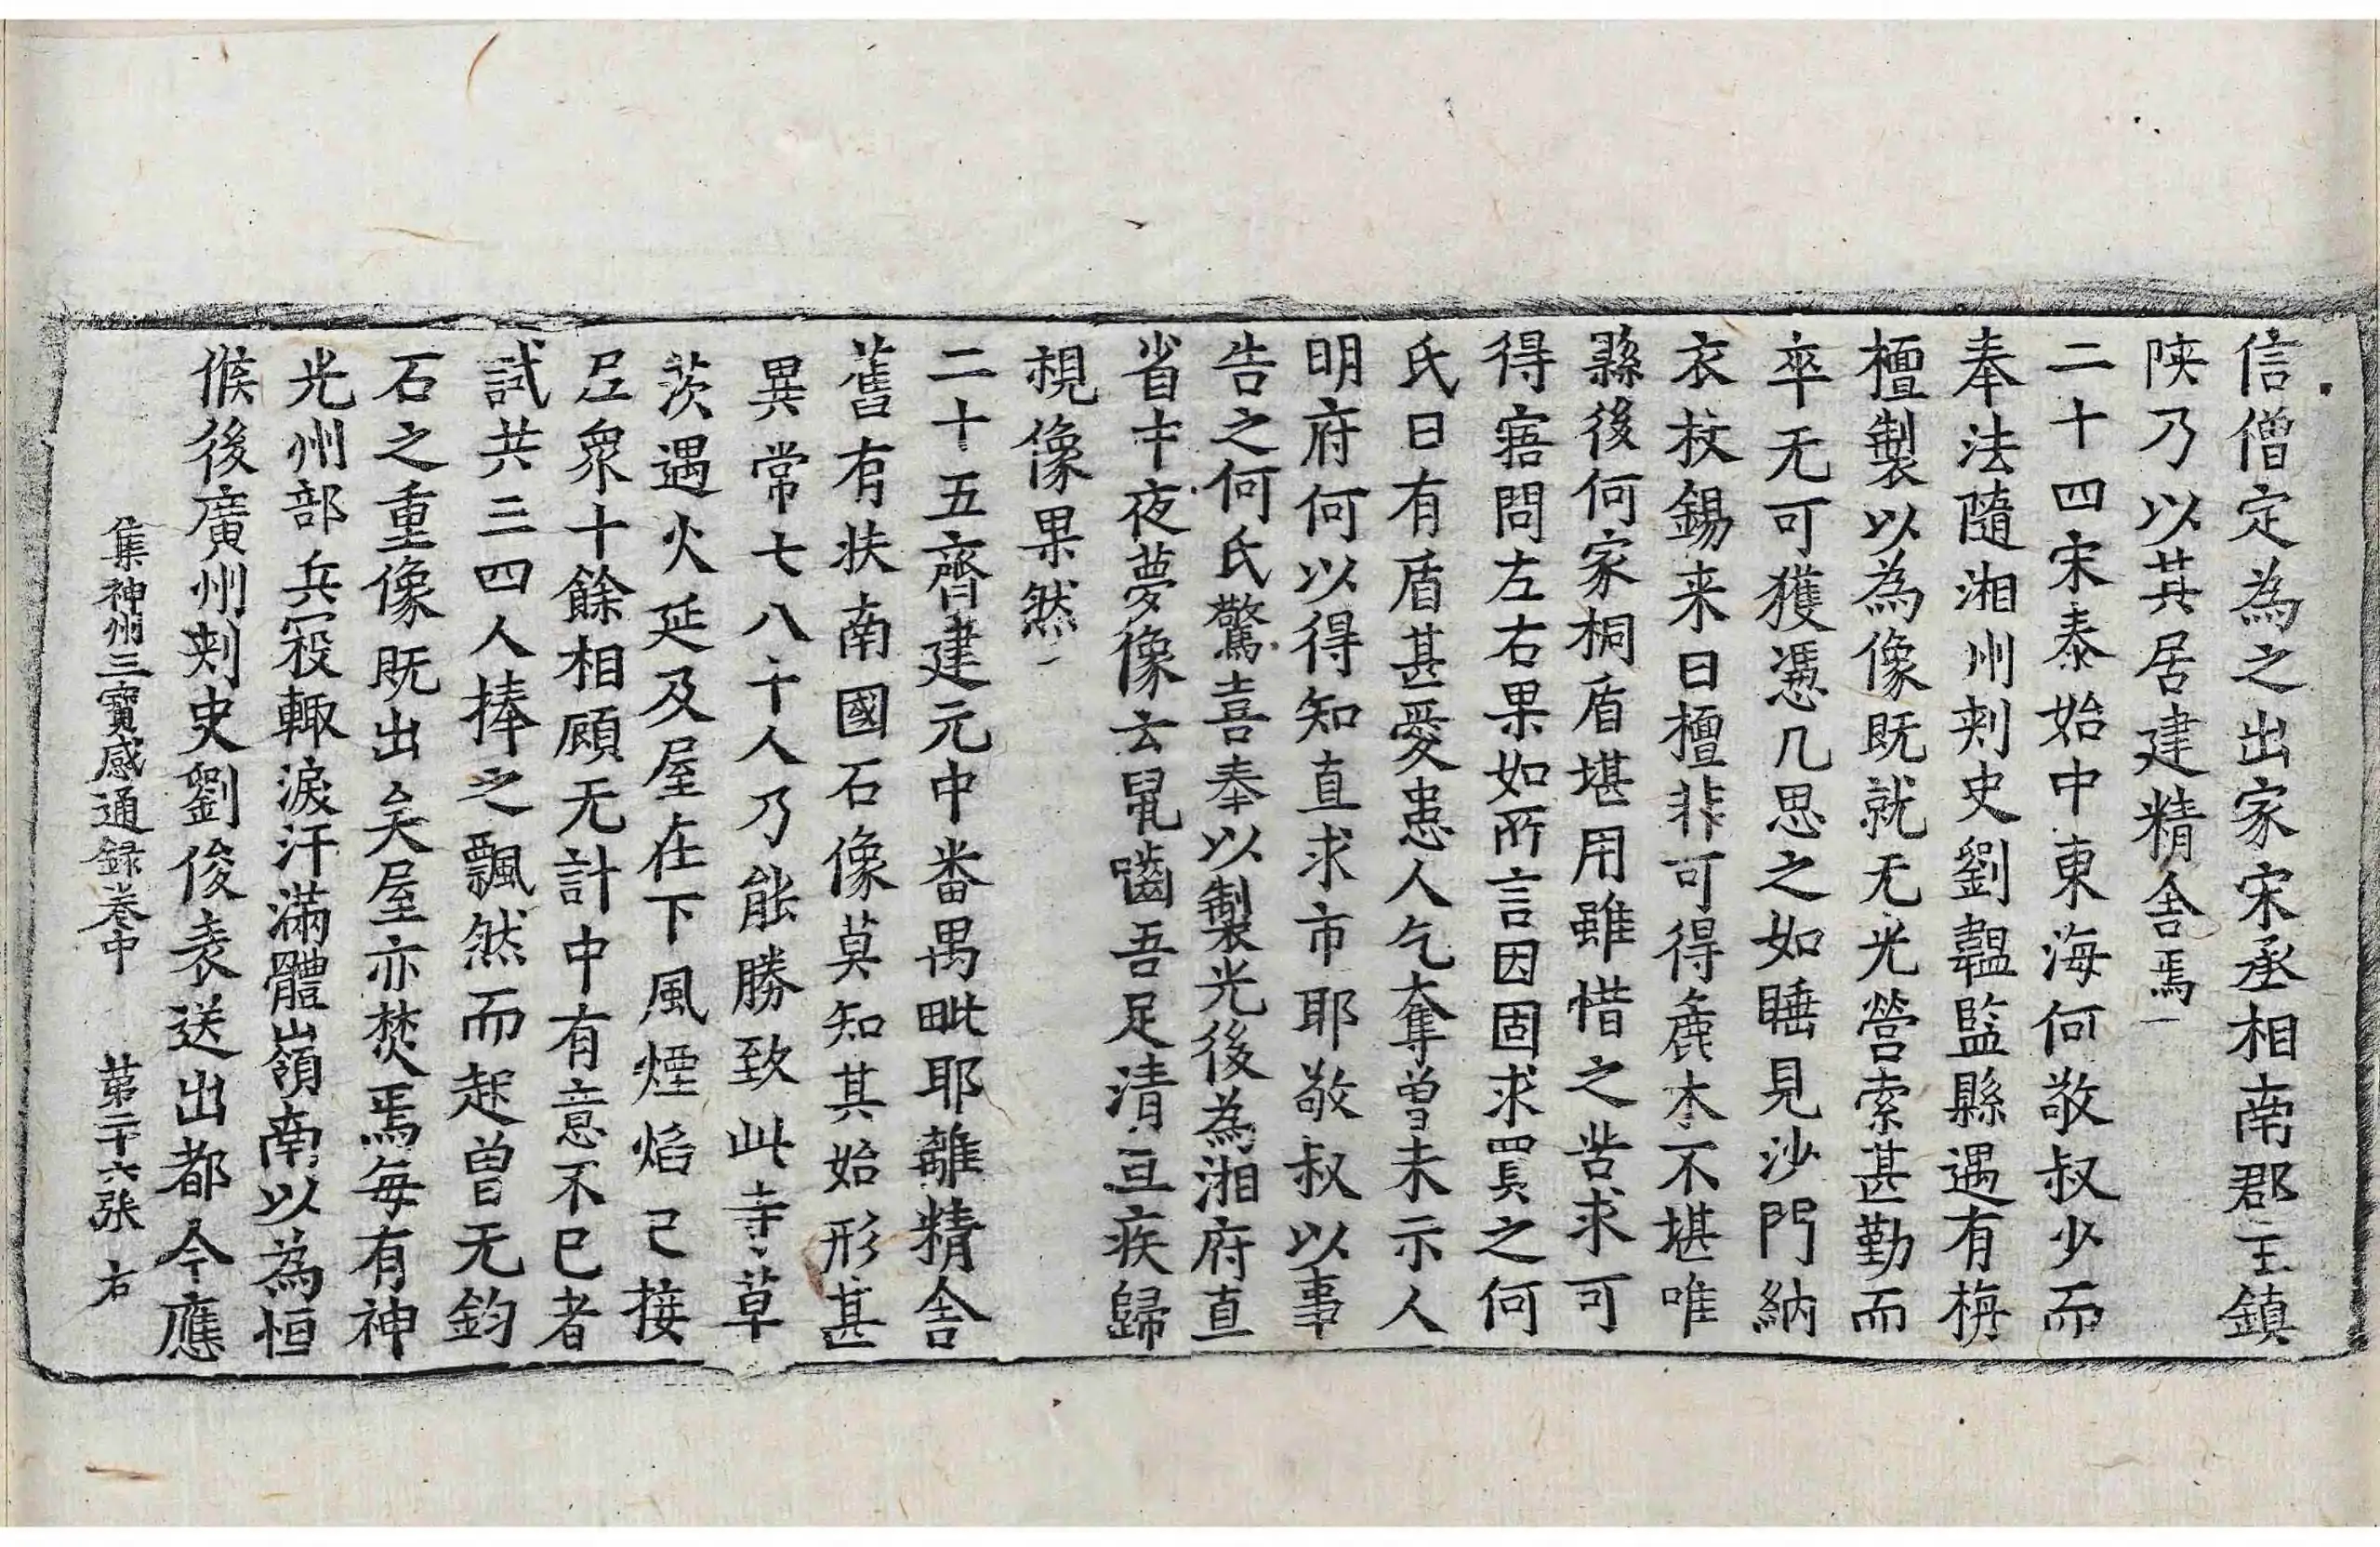 信僧定為之出家宋丞相南郡王鎮
陜乃以其居建精舍焉
二十四宋泰始中東海何敬叔少而
奉法隨湘州刾史劉韞監縣遇有栴
檀製以為像既就无光營索甚勤而
卒无可獲憑几思之如睡見沙門納
衣杖錫来曰檀非可得麁木不堪唯
縣後何家桐盾堪用雖惜之苦求可
得寤問左右果如所言因固求買之何
氏曰有盾甚愛患人乞奪曾未示人
明府何以得知直求市耶敬叔以事
告之何氏驚喜奉以製光後為湘府直
省中夜夢像云鼠嚙吾足清旦疾歸
視像果然
二十五齊建元中番禺毗耶離精舍
舊有扶南國石像莫知其始形甚
異常七八十人乃能勝致此寺草
茨遇火延及屋在下風煙焰已接
尼衆十餘相顧无計中有意不已者
試共三四人捧之飄然而起曾无鈞
石之重像既出矣屋亦焚焉每有神
光州部兵寇輙淚汗滿體嶺南以為恒
候後廣州刾史劉俊表送出都今應
集神州三寳感通録卷中　第二十六張　右